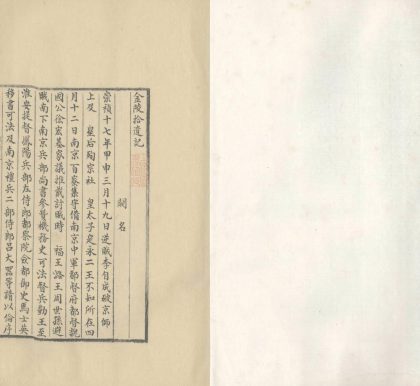 金陵拾遺記
闕名
崇禎十七年甲申三月十九日逆賊李自成破京師
上及　皇后殉宗社　皇太子定永二王不知所在四
月十二日南京百寮集守備南京中軍都督府都督魏
國公徐宏基家議推戴討賊時　福王潞王周世孫避
賊南下南京兵部尚書參贊機務史可法督兵勤王至
淮安提督鳳陽兵部左侍郎都察院僉都御史馬士英
移書可法及南京禮兵二部侍郎呂大器等請以倫序